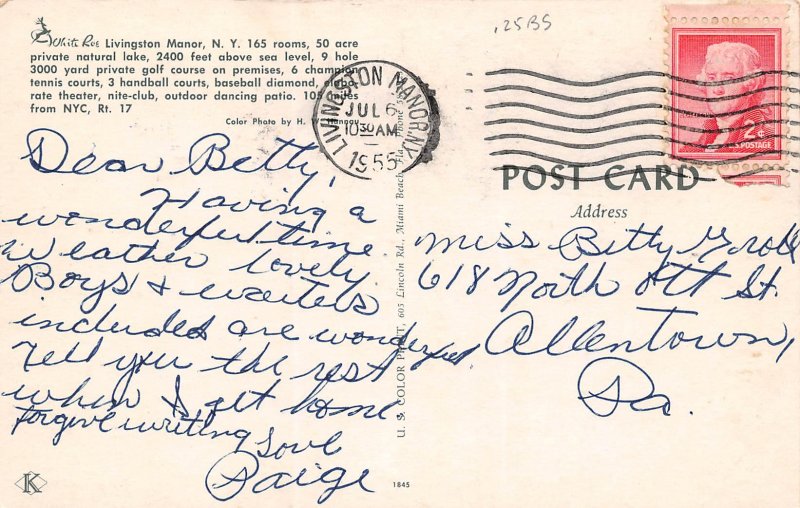 White Roe Livingston Manor, N. Y. 165 rooms, 50 acre
private natural lake, 2400 feet above sea level, 9 hole
3000 yard private golf course on premises, 6 champion
tennis courts, 3 handball courts, baseball diamond,
rate theater, nite-club, outdoor dancing patio. 105 miles
from NYC, Rt. 17
Color Photo by H. W. Hannau
Dear Betty,
Having a
wonderful time
weather lovely
Boys & waiters
included are wonderful
Tell you the rest
when I get home
forgive writing
Love
Paige
K
1845
U. S. COLOR PRINT, 605 Lincoln Rd., Miami Beach, Fla. Phone
.25BS
LIVINGSTON MANOR. N.Y.
JUL 6
10 30 AM
1955
2¢
U.S. POSTAGE
POST CARD
Address
Miss Betty
618 North Ott St.
Allentown,
Pa.